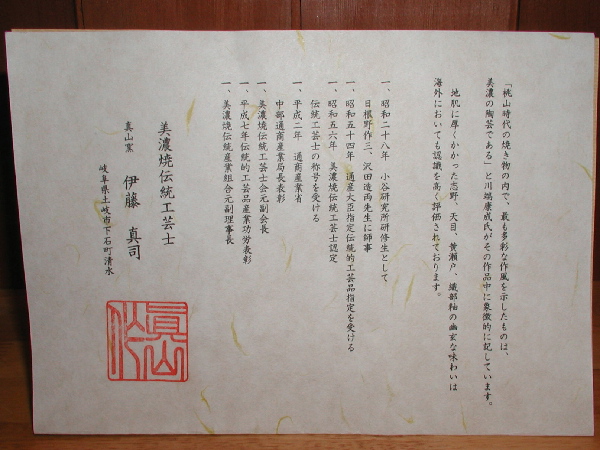 「桃山時代の焼き物の内で、最も多彩な作風を示したものは、
美濃の陶芸である」と川端康成氏がその作品中に象徴的に記しています。
地肌に厚くかかった志野、天目、黄瀬戸、織部釉の幽玄な味わいは
海外においても認識を高く評価されております。
一、昭和二十八年　小谷研究所研修生として
日根野作三、沢田造両先生に師事
一、昭和五十四年　通産大臣指定伝統的工芸品指定を受ける
一、昭和五六年　美濃焼伝統工芸士認定
伝統工芸士の称号を受ける
一、平成二年　通商産業省
中部通商産業局長表彰
一、美濃焼伝統工芸士会元副会長
一、平成七年伝統的工芸品産業功労表彰
一、美濃焼伝統産業組合元副理事長
美濃焼伝統工芸士
真山窯　伊藤　真司
岐阜県土岐市下石町清水